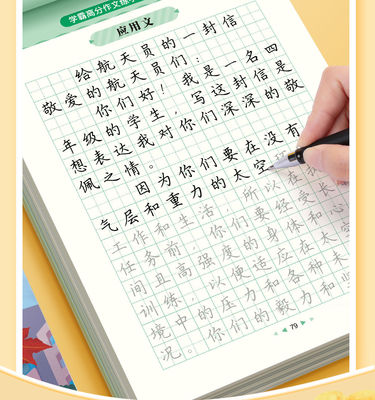 学霸高分作文练
应用文
给航天员的一封信
敬爱的航天员们：
你们好！我是一名四
年级的学生，写这封信是
想表达我对你们深深的敬
佩之情。
因为你们要在没有
气层和重力的太空
工作和生活，所以在执
任务前，你们要经受长
间且高强度的身体和心
训练，以便适应在太空
境中的压力和各种未
况。你们的毅力和坚
79